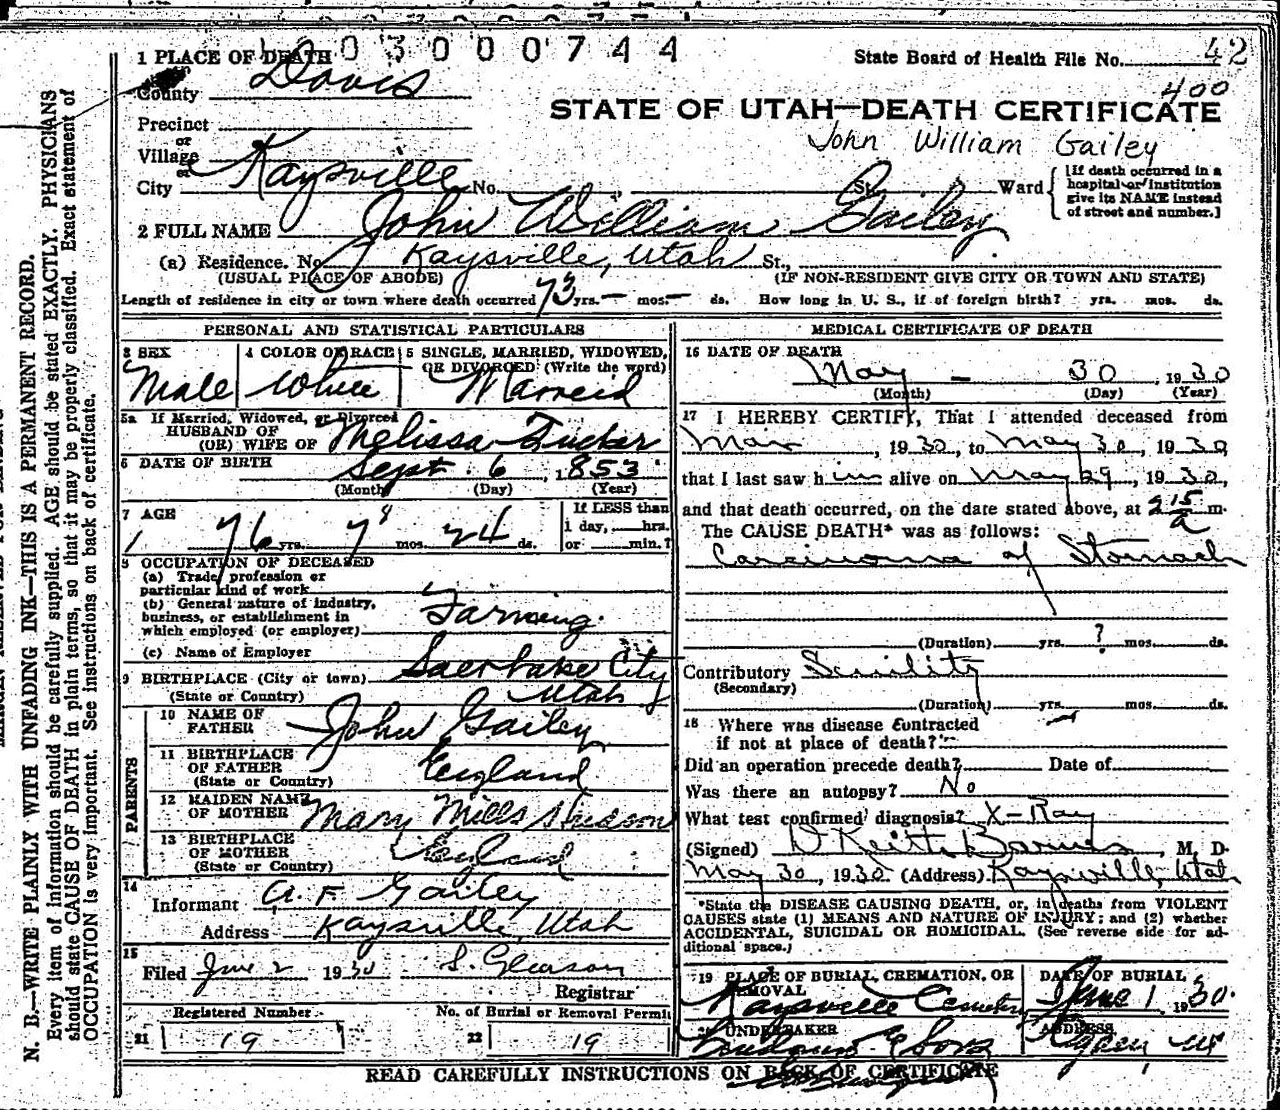 030000744
1 PLACE OF DEATH
State Board of Health File No. 42
County Davis
400
STATE OF UTAH—DEATH CERTIFICATE
Precinct
or
Village
or
John William Gailey
City Kaysville No. St. Ward
[If death occurred in a hospital or institution give its NAME instead of street and number.]
2 FULL NAME John William Gailey
(a) Residence. No. Kaysville, Utah St.,
(USUAL PLACE OF ABODE) (IF NON-RESIDENT GIVE CITY OR TOWN AND STATE)
Length of residence in city or town where death occurred 73 yrs. — mos. — ds. How long in U. S., if of foreign birth? yrs. mos. ds.
PERSONAL AND STATISTICAL PARTICULARS
3 SEX
Male
4 COLOR OR RACE
White
5 SINGLE, MARRIED, WIDOWED, OR DIVORCED (Write the word)
Marreid
5a If Married, Widowed, or Divorced
HUSBAND OF
(OR) WIFE OF Melissa Tucker
6 DATE OF BIRTH Sept. 6, 1853
(Month) (Day) (Year)
7 AGE
76 yrs. 7 8 mos. 24 ds.
If LESS than
1 day, hrs.
or min.?
8 OCCUPATION OF DECEASED
(a) Trade, profession or
particular kind of work
(b) General nature of industry,
business, or establishment in
which employed (or employer) Farming
(c) Name of Employer
9 BIRTHPLACE (City or town) City
(State or Country) Utah
PARENTS
10 NAME OF
FATHER John Gailey
11 BIRTHPLACE
OF FATHER England
(State or Country)
12 MAIDEN NAME
OF MOTHER Mary Mills Hudson
13 BIRTHPLACE
OF MOTHER England
(State or Country)
14
Informant A. F. Gailey
Address Kaysville, Utah
15
Filed June 2 1930 S. Gleason
Registrar
Registered Number
21 19
No. of Burial or Removal Permit
22 19
MEDICAL CERTIFICATE OF DEATH
16 DATE OF DEATH
May — 30, 1930
(Month) (Day) (Year)
17 I HEREBY CERTIFY, That I attended deceased from
Mar, 1930, to May 30, 1930
that I last saw him alive on May 29, 1930,
and that death occurred, on the date stated above, at 2 15 a m.
The CAUSE DEATH* was as follows:
Carcinoma of Stomach
(Duration) yrs. ? mos. ds.
Contributory Senility
(Secondary)
(Duration) yrs. mos. ds.
18 Where was disease contracted
if not at place of death?
Did an operation precede death? Date of
Was there an autopsy? No
What test confirmed diagnosis? X-Ray
(Signed) D Keith Barnes, M. D.
May 30, 1930 (Address) Kaysville, Utah
*State the DISEASE CAUSING DEATH, or, in deaths from VIOLENT
CAUSES state (1) MEANS AND NATURE OF INJURY; and (2) whether
ACCIDENTAL, SUICIDAL OR HOMICIDAL. (See reverse side for ad-
ditional space.)
19 PLACE OF BURIAL, CREMATION, OR
REMOVAL
Kaysville Cemetery
DATE OF BURIAL
June 1 1930
20 UNDERTAKER
& Sons
ADDRESS
READ CAREFULLY INSTRUCTIONS ON BACK OF CERTIFICATE
N. B.—WRITE PLAINLY WITH UNFADING INK—THIS IS A PERMANENT RECORD.
Every item of information should be carefully supplied. AGE should be stated EXACTLY. PHYSICIANS
should state CAUSE OF DEATH in plain terms, so that it may be properly classified. Exact statement of
OCCUPATION is very important. See instructions on back of certificate.